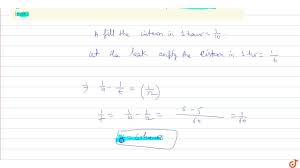 A fill the cistern in 1 hour = 1/10
Let the leak empty the cistern in 1 hr = 1/t
⇒ 1/10 - 1/t = (1/12)
1/t = 1/10 - 1/12 = 6-5/60 = 1/60